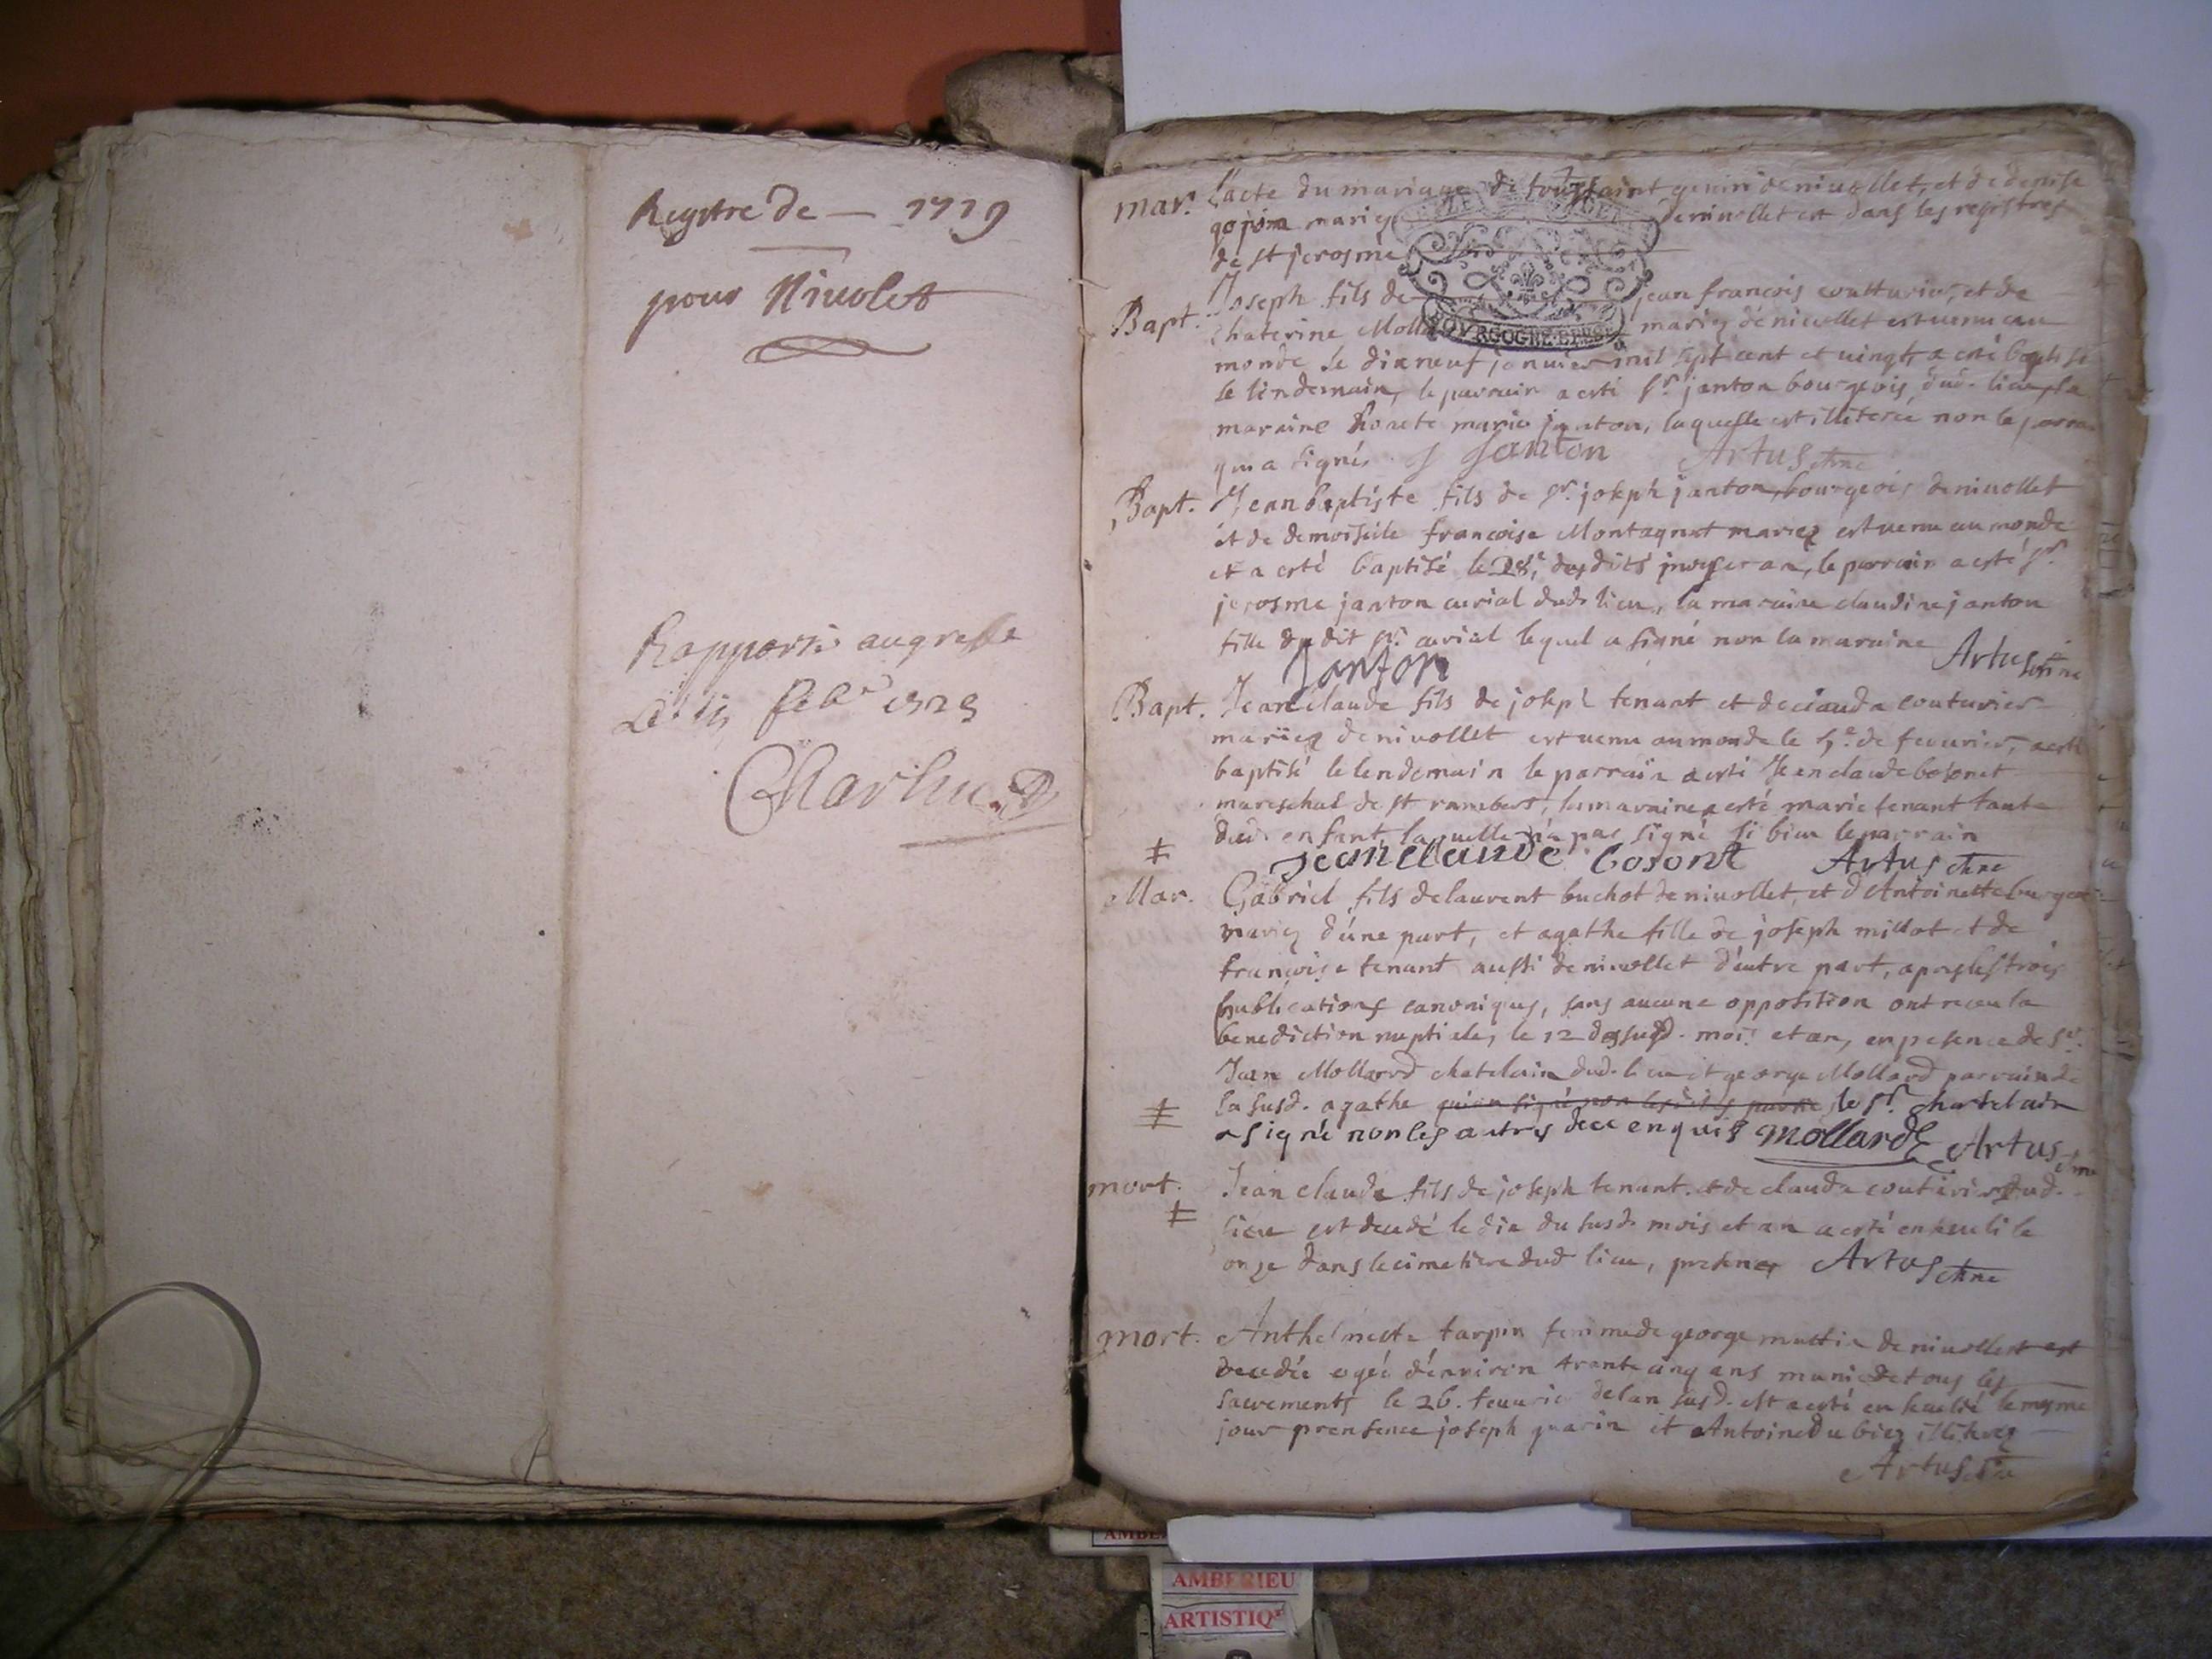 Regstre de — 1719
pour Niuolet
Rapporté au greffe
mar. L'acte du mariage de toussaint genin de niuollet, et de denise
gojon mariez de niuollet est dans les regestres
de st jerosme
Bapt. Joseph fils de jean francois coutturier, et de
Chaterine Mollard mariez de niuollet est uenu au
monde le dix neuf januier mil sept cent et uingt, a esté baptisé
le lindemain, le parrain a esté sr. janton bourgeois dud. lieu, la
maraine honete marie janton, laquelle est illiterée non le parrain
qui a signé. J Janton Artus
Bapt. Jean baptiste fils de sr. joseph janton, bourgeois de niuollet
et de demoiselle francoise Montagnat mariez est uenu au monde
et a esté baptisé le 28e, desdits mois et an, le parrain a esté sr.
jerosme janton curial dud. lieu, la maraine claudine janton
fille du dit sr. curial lequel a signé non la maraine Artus
Janton
Bapt. Jean claude fils de joseph tenant et de clauda couturier
mariez de niuollet est uenu au monde le de feurier, a esté
baptisé le lendemain le parrain a esté Jean claude bosonet
mareschal de st rambert, la maraine a esté marie tenant tante
dud. enfant, laquelle n'a pas signé si bien le parrain
Jean claude bosont Artus
Mar. Gabriel fils de laurent buchot de niuollet, et d'Antoinette
mariez d'une part, et agathe fille de joseph millot et de
françoise tenant aussi de niuollet d'autre part, apres les trois
publications canoniques, sans aucune opposition ont receu la
benediction nuptiale, le 12 des susd. mois et an, en presence de sr.
Jean Mollard chatelain dud. lieu et george Mollard parrain de
la susd. agathe le sr. chastelain
a signé non les autres de ce enquis Mollard Artus
mort. Jean claude fils de joseph tenant et de clauda couturier dud.
lieu est decedé le dix du susd. mois et an a esté enseueli le
onze dans le cimetiere dud lieu, Artus
mort. Anthelmette tarpin femme de george de niuollet est
decedée agée d'enuiron trante cinq ans munie de tous les
sacrements le 26. feurier de l'an susd. et a esté enseuelie le mesme
jour presence joseph guarin et Antoine Dubiez illiterez
Artus
AMBERIEU
ARTISTIQ